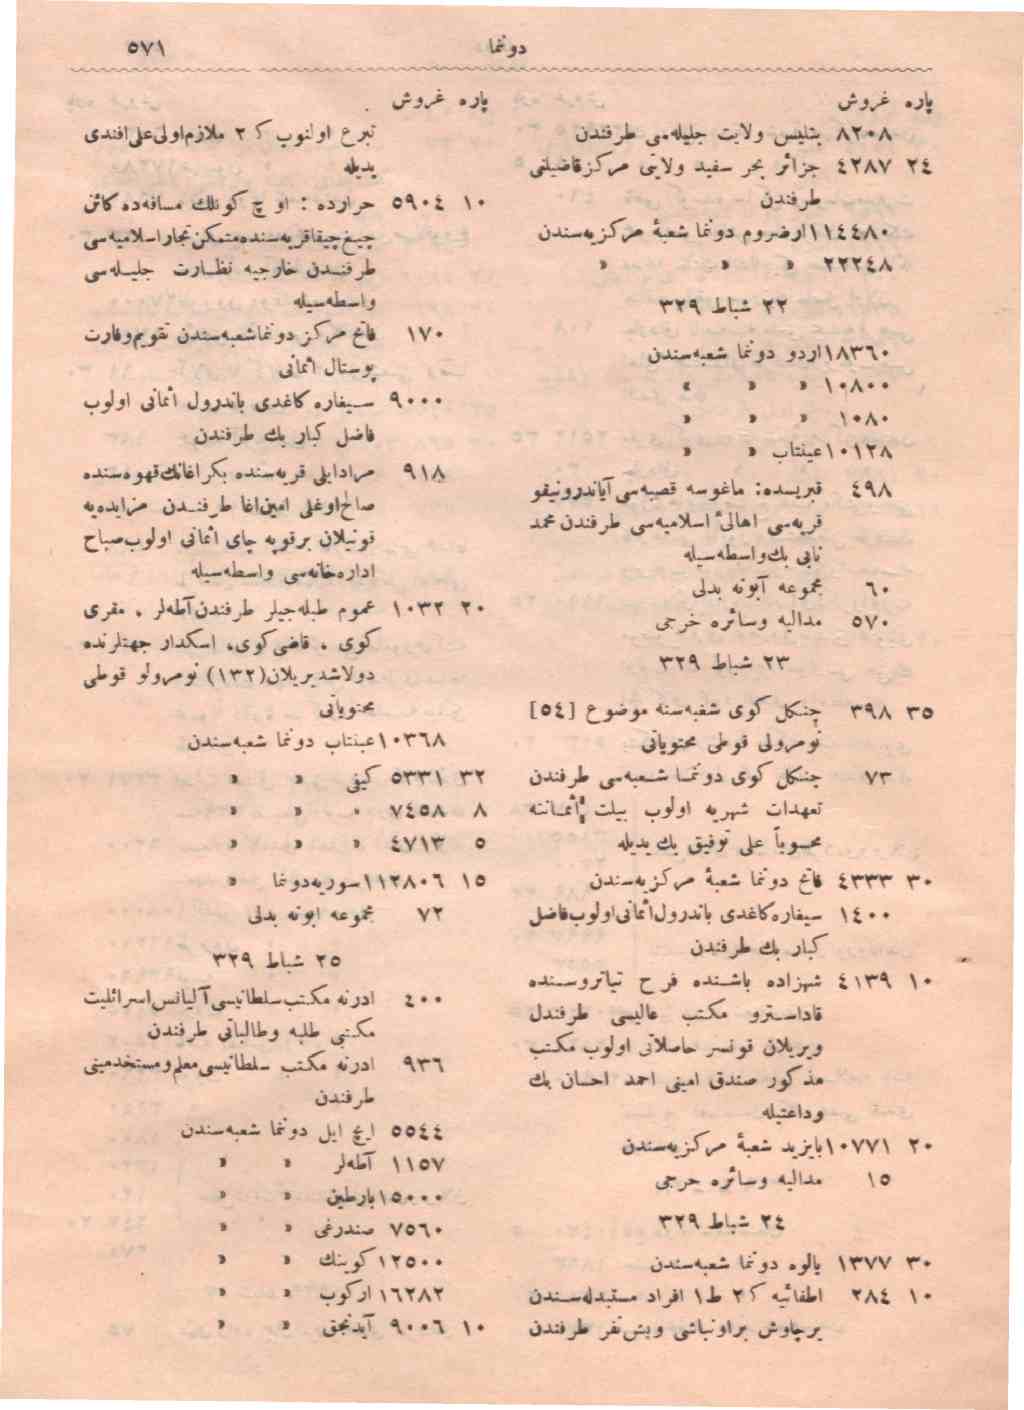 دوننما ٥٧١
پاره غروش
٨٢٠٨ بتليس ولايت جليله‌سی طرفندن
٢٤ ٤٢٨٧ جزائر بحر سفيد ولايتی مركز قاضيلغی
طرفندن
١١٤٤٨٠ ارضروم دوننما شعبهٔ مركزيه‌سندن
٢٢٢٤٨ » » »
٢٢ شباط ٣٢٩
١٨٣٦٠ اردو دوننما شعبه‌سندن
١٠٨٠٠ » » »
١٠٨٠ » » »
١٠١٢٨ عينتاب » »
٤٩٨ قبريسده: ماغوسه قصبه‌سی آياندرونيقو
قريه‌سی اهالیٔ اسلاميه‌سی طرفندن محمد
نابی بك واسطه‌سيله
٦٠ مجموعه آبونه بدلی
٥٧٠ مداليه وسائره خرجی
٢٣ شباط ٣٢٩
٣٥ ٣٩٨ چنكل كوی شعبه‌سنه موضوع [٥٤]
نومرولی قوطی محتوياتی
٧٣ چنكل كوی دوننما شعبه‌سی طرفندن
تعهدات شهريه اولوب بيلت اثماننه
محسوباً علی توفيق بك يديله
٣٠ ٤٣٣٣ فاتح دوننما شعبهٔ مركزيه‌سندن
١٤٠٠ سيغاره كاغدی باندرول اثمانی اولوب فاضل
كبار بك طرفندن
١٠ ٤١٣٩ شهزاده باشنده فرح تياتروسنده
قاداسترو مكتب عاليسی طرفندن
ويريلان قونسر حاصلاتی اولوب مكتب
مذكور صندق امينی احمد احسان بك
وداعتيله
٢٠ ١٠٧٧١ بايزيد شعبهٔ مركزيه‌سندن
١٥ مداليه وسائره خرجی
٢٤ شباط ٣٢٩
٣٠ ١٣٧٧ يالوه دوننما شعبه‌سندن
١٠ ٢٨٤ اطفائيه ك ٢ ط ١ افراد مستبدله‌سندن
برچاوش براونباشی وبش نفر طرفندن
پاره غروش
تبرع اولنوب ك ٢ ملازم اولی علی افندی
يديله
١٠ ٥٩٠٤ حرارده : اوچ كونلك مسافه‌ده كائن
چيغ‌چيقا قريه‌سنده متمكن تجار اسلاميه‌سی
طرفندن خارجيه نظارت جليله‌سی
واسطه‌سيله
١٧٠ فاتح مركز دوننما شعبه‌سندن تقويم وقارت
پوستال اثمانی
٩٠٠٠ سيغاره كاغدی باندرول اثمانی اولوب
فاضل كبار بك طرفندن
٩١٨ مرادايلی قريه‌سنده بكر اغانك قهوه‌سنده
صالح اوغلی امين اغا طرفندن مزايده‌يه
قونيلان برقوپه چای اثمانی اولوب صباح
اداره‌خانه‌سی واسطه‌سيله
٢٠ ١٠٣٢ عموم طبله‌جيلر طرفندن آطه‌لر ، مقری
كوی ، قاضی كوی، اسكدار جهتلرنده
دولاشديريلان (١٣٢) نومرولو قوطی
محتوياتی
١٠٣٦٨ عينتاب دوننما شعبه‌سندن
٣٢ ٥٣٣١ كيفی » »
٨ ٧٤٥٨ » » »
٥ ٤٧١٣ » » »
١٥ ١١٢٨٠٦ سوريه دوننما »
٧٢ مجموعه ابونه بدلی
٢٥ شباط ٣٢٩
٤٠٠ ادرنه مكتب سلطانيسی آليانس اسرائليت
مكتبی طلبه وطالباتی طرفندن
٩٣٦ ادرنه مكتب سلطانيسی معلم ومستخدمينی
طرفندن
٥٥٤٤ ايچ ايل دوننما شعبه‌سندن
١١٥٧ آطه‌لر » »
١٥٠٠٠ بارطين » »
٧٥٦٠ صندرغی » »
١٢٥٠٠ كوينك » »
١٦٢٨٢ اركوب » »
١٠ ٩٠٠٦ آيدنجق » »